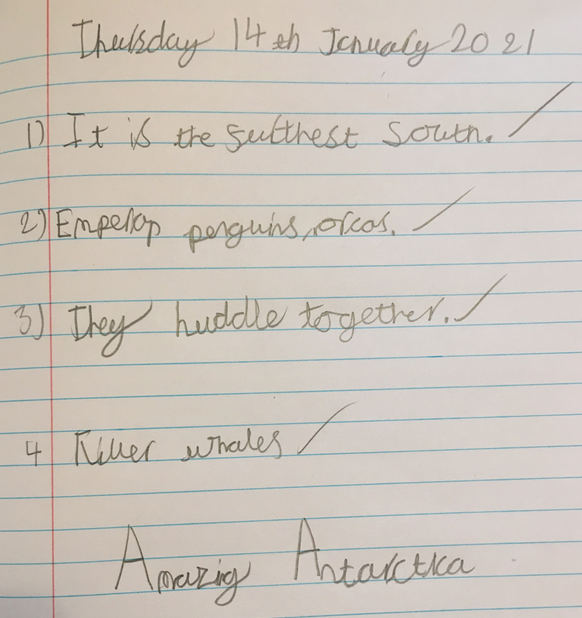 Thursday 14th January 2021
1) It is the furthest south.
2) Emperop penguins, orcas.
3) They huddle together.
4 Killer whales
Amazing Antarctica